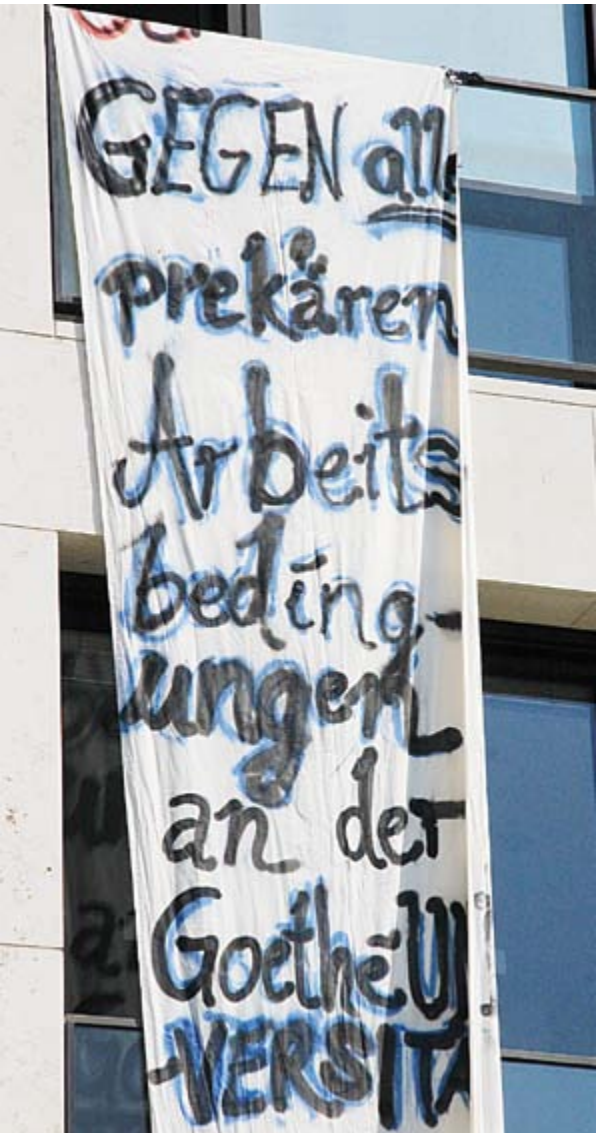 GEGEN alle
prekären
Arbeits
beding-
ungen
an der
Goethe U
-VERSITÄ